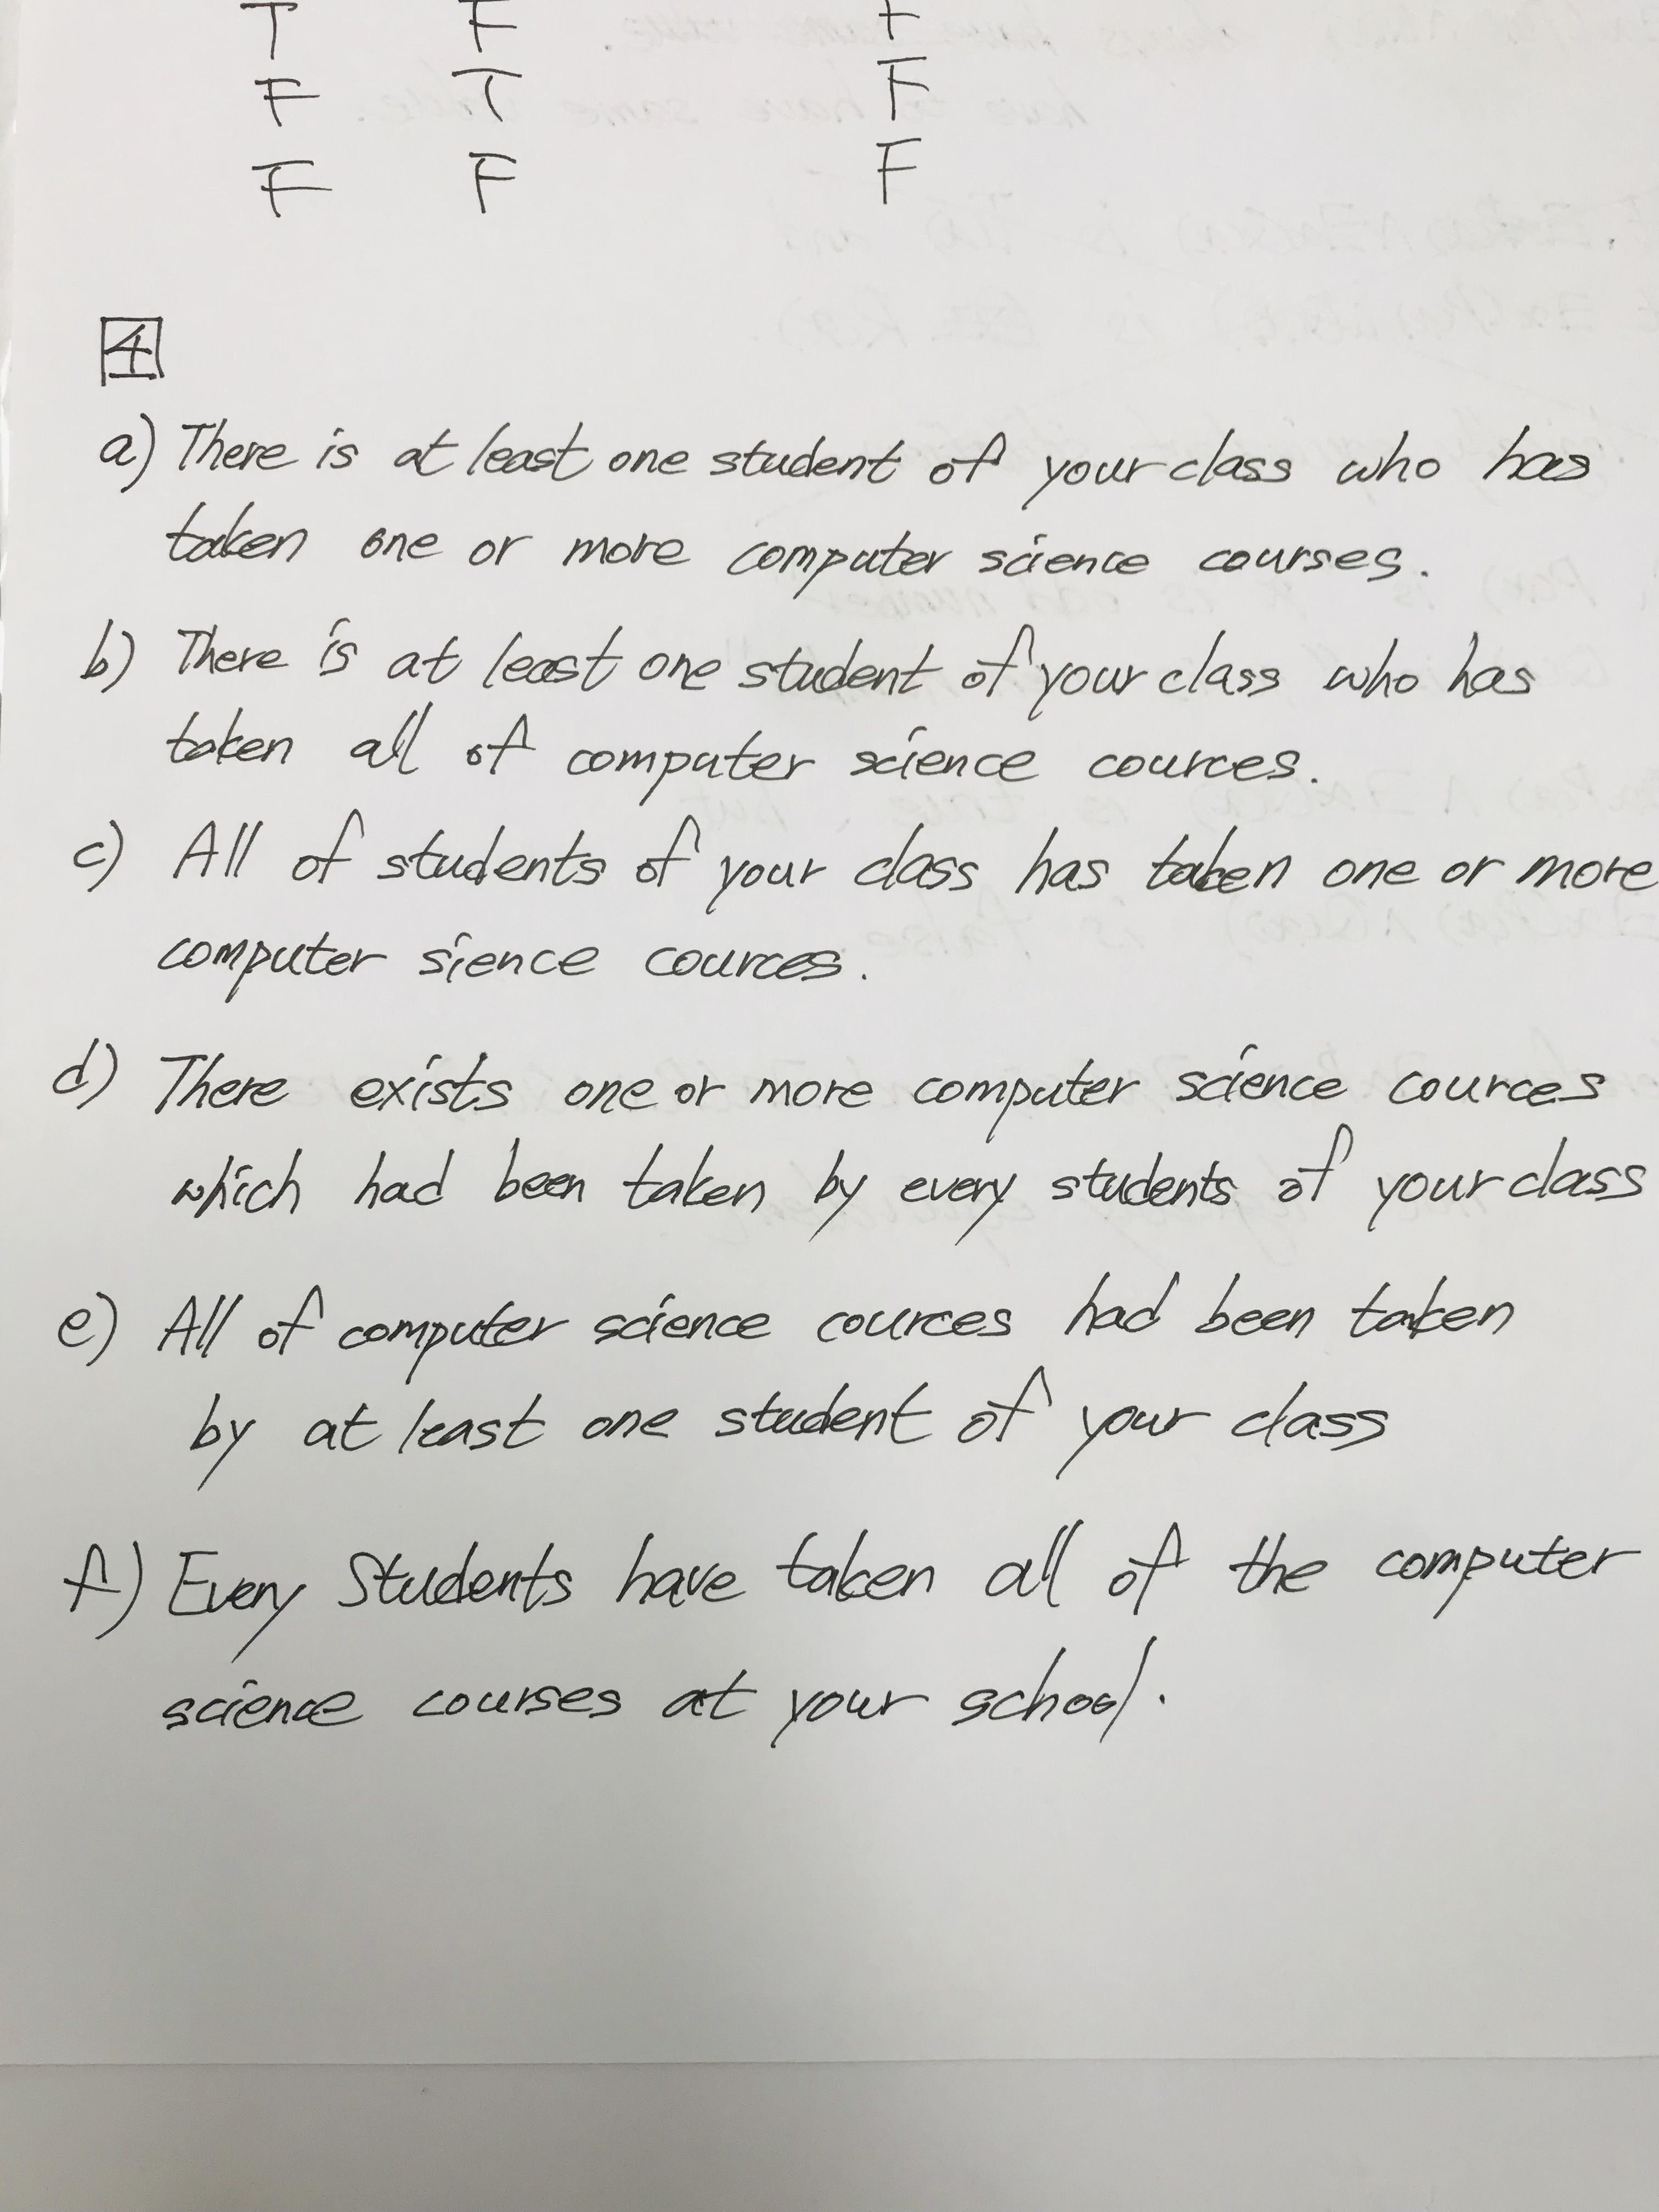 T F F
F T F
F F F
4
a) There is at least one student of your class who has
taken one or more computer science courses.
b) There is at least one student of your class who has
taken all of computer science cources.
c) All of students of your class has taken one or more
computer sience cources.
d) There exists one or more computer science cources
which had been taken by every students of your class
e) All of computer science cources had been taken
by at least one student of your class
f) Every Students have taken all of the computer
science courses at your school.